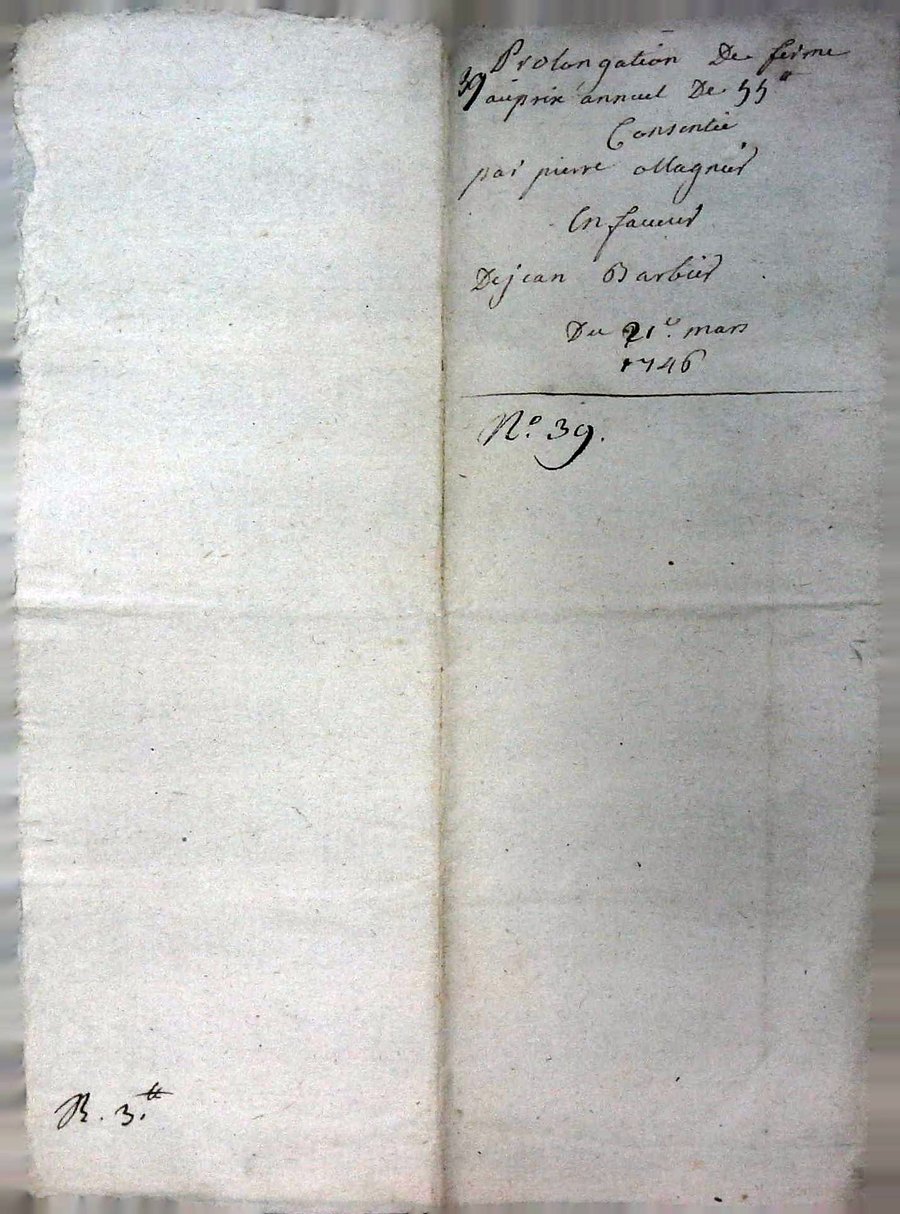 Prolongation De ferme
39 auprix annuel De 55 ₶
Consentie
par pierre Magnier
En faueur
De jean Barbier
Du 21e mars
1746
N.o 39.
R. 3.₶